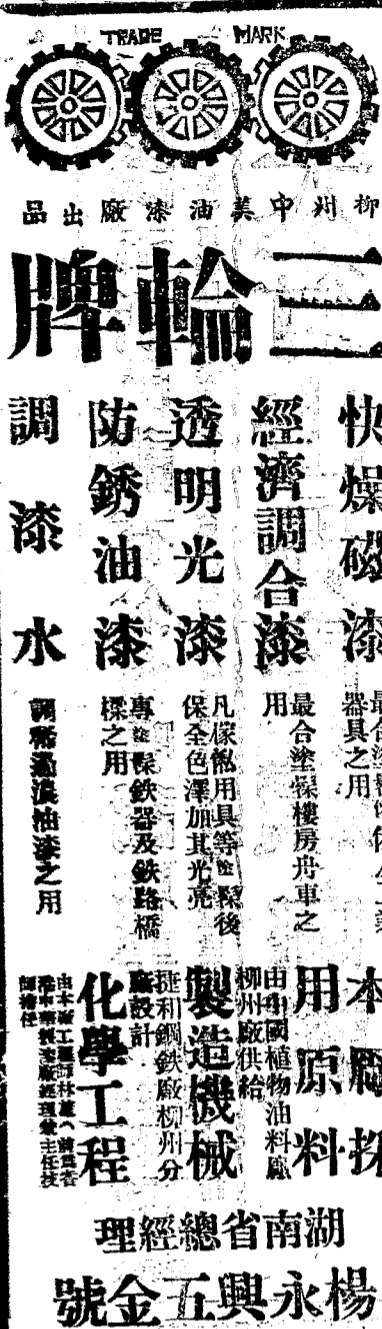 TRADE MARK
柳州中美油漆廠出品
三輪牌
快燥磁漆
器具之用
經濟調合漆
最合塗髹樓房舟車之
用
透明光漆
凡傢俬用具等塗髹後
保全色澤加其光亮
防銹油漆
專塗髹鉄器及鉄路橋
樑之用
調漆水
調稀過濃油漆之用
本廠採
用原料
由中國植物油料廠
柳州廠供給
製造機械
捷利鋼鉄廠柳州分
廠設計
化學工程
師擔任
湖南省總經理
楊永興五金號